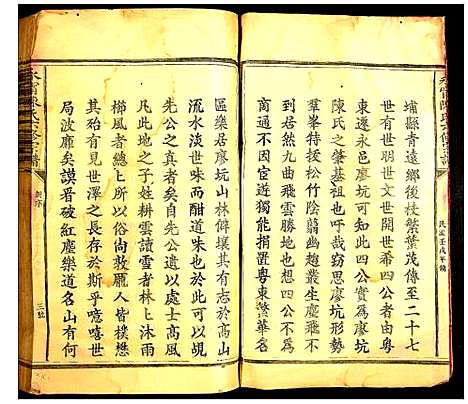 埔縣青遠鄉後枝繁葉茂傳至二十七
世有世明世文世開世希四公者由粵
東遷永邑廖坑可見世希四公實爲廖坑
陳氏之肇基祖也吁哉窈思廖坑形勢
羣峯特拔松竹陰翳幽趣叢生慶飛不
到居然九曲飛雲勝地也想四公不爲
商通不因宦遊獨能脂捐粵東繁華名
區樂居廖坑山林俾壤其有志於高山
流水淡世味而甜道味也於此可以見
先公之真者矣自先公遺以處士高風
凡此地之子姓耕雲讀雪者林上沐雨
櫛風者總上所云俗尚敦龐人皆樸懋
甚殆有見世澤之長存於斯乎噫嘻世
局波靡矣謨晋破紅塵樂道名山有何
新序
三
民國壬戌年鐫